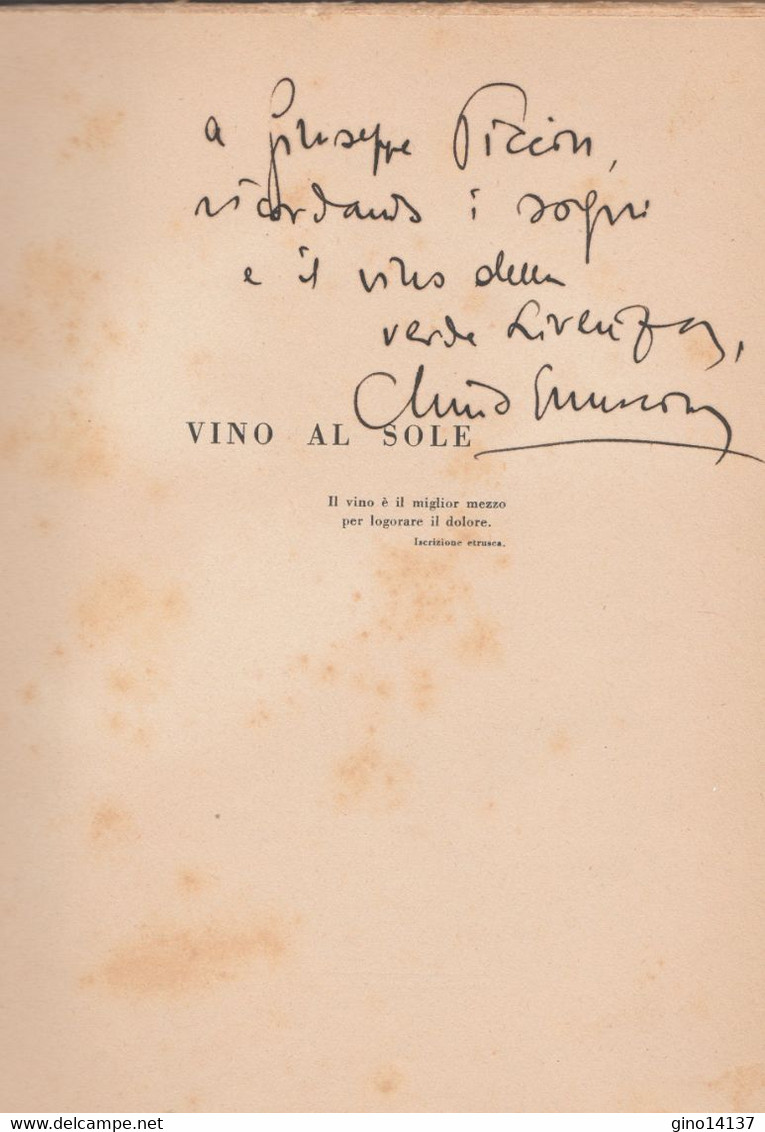 a Giuseppe Piccoli,
ricordando i sogni
e il vino della
verde Livenza,
VINO AL SOLE
Il vino è il miglior mezzo
per logorare il dolore.
Iscrizione etrusca.
www.delcampe.net
gino14137